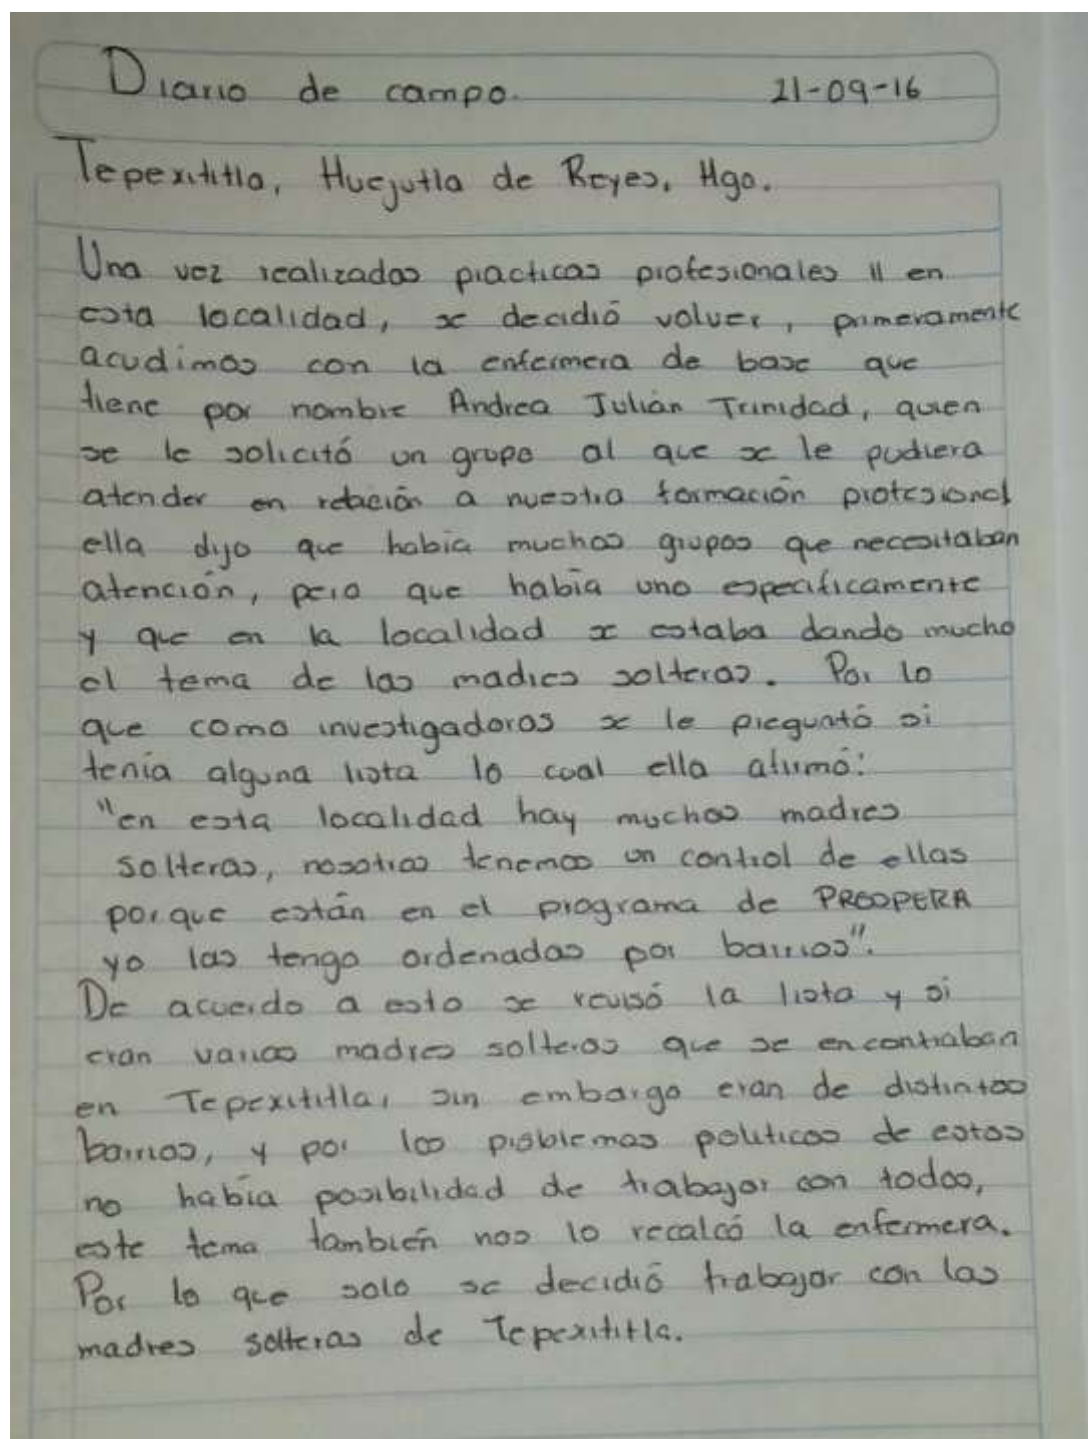 Diario de campo. 21-09-16
Tepexititla, Huejutla de Reyes, Hgo.
Una vez realizadas practicas profesionales II en
esta localidad, se decidió volver, primeramente
acudimos con la enfermera de base que
tiene por nombre Andrea Julián Trinidad, quien
se le solicitó un grupo al que se le pudiera
atender en relación a nuestra formación profesional
ella dijo que había muchos grupos que necesitaban
atención, pero que había uno especificamente
y que en la localidad se estaba dando mucho
el tema de las madres solteras. Por lo
que como investigadoras se le preguntó si
tenía alguna lista lo cual ella afirmó:
"en esta localidad hay muchas madres
solteras, nosotras tenemos un control de ellas
porque están en el programa de PROSPERA
yo las tengo ordenadas por barrios".
De acuerdo a esto se revisó la lista y si
eran varias madres solteras que se encontraban
en Tepexititla, sin embargo eran de distintos
barrios, y por los problemas politicos de estos
no había posibilidad de trabajar con todos,
este tema también nos lo recalcó la enfermera.
Por lo que solo se decidió trabajar con las
madres solteras de Tepexititla.